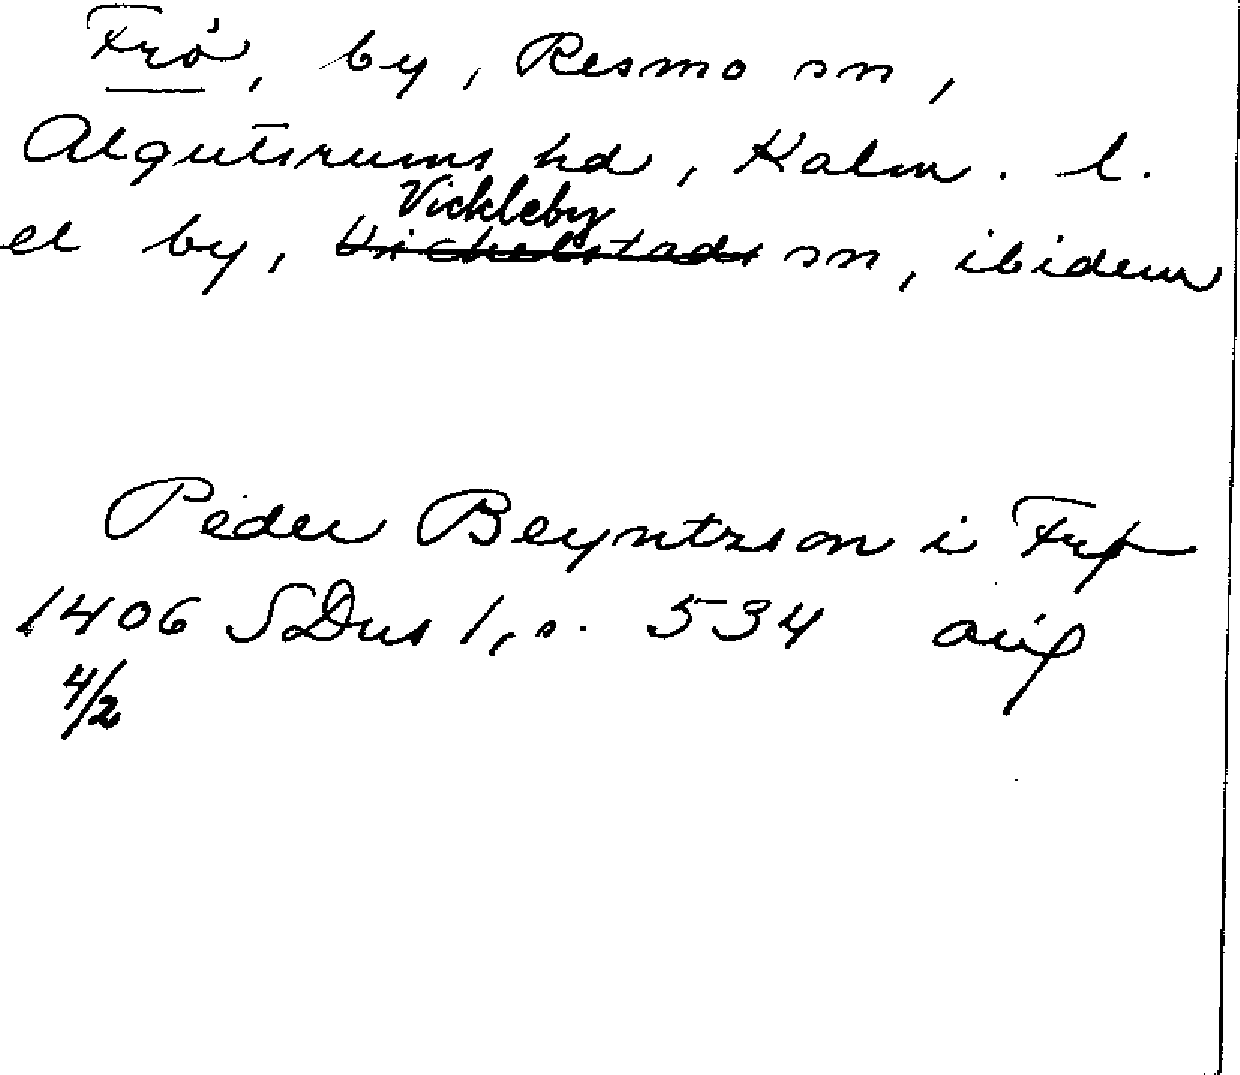 Frö, by, Resmo sn,
Algutsrums hd, Kalm. l.
Vickleby
el by, Vickelstads sn, ibidem
Peder Beyntzson i Frø
1406 SDns 1, s. 534 avs
4/2